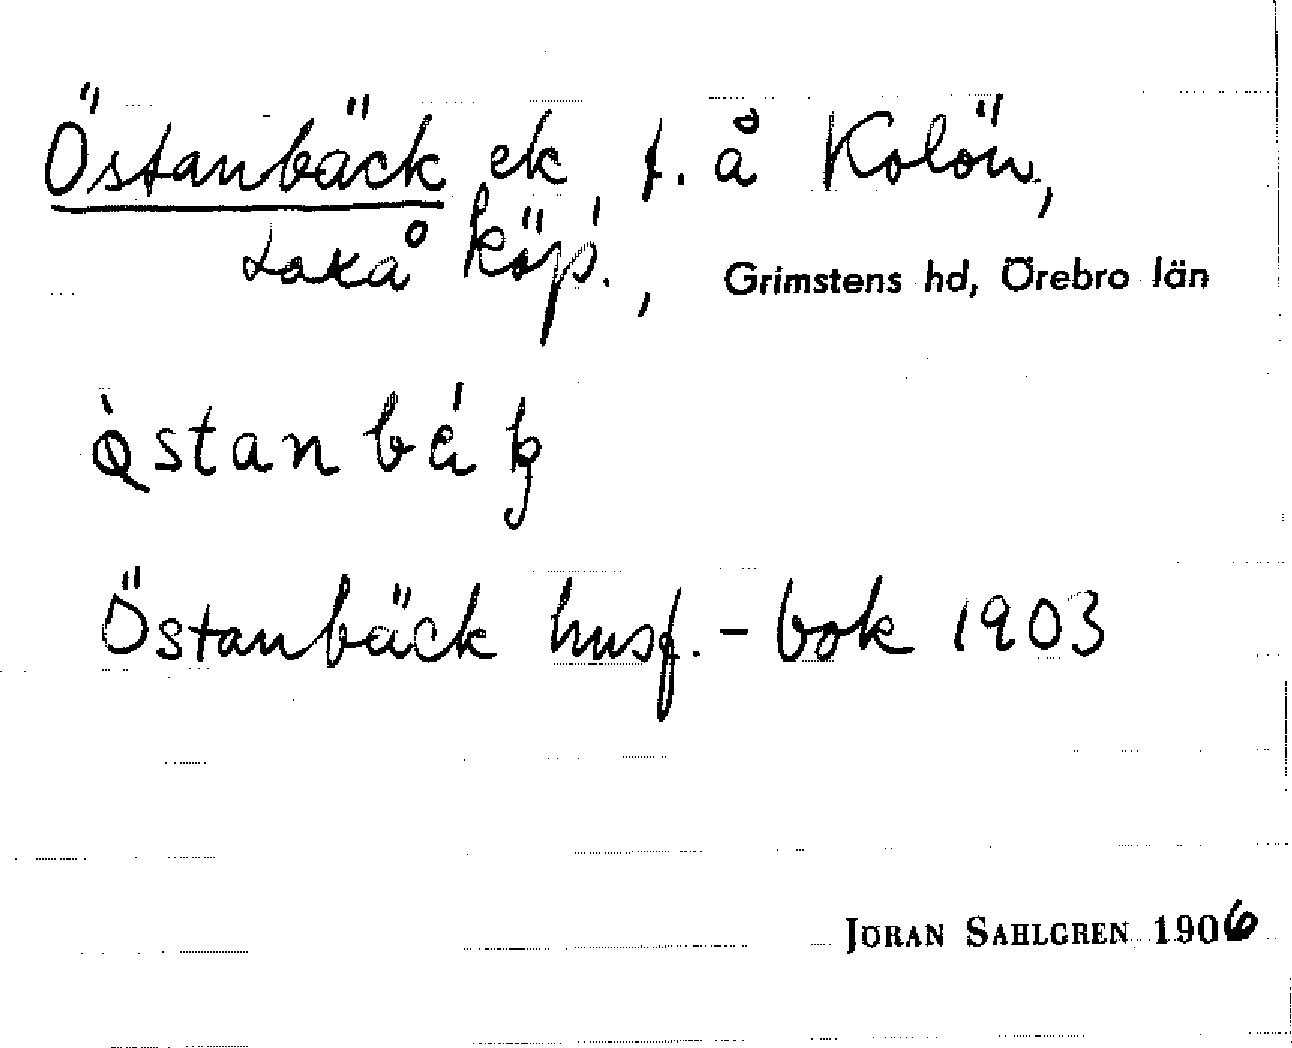 Östanbäck ek t. å Kolön,
Laxå köp., Grimstens hd, Örebro län
Östanbäck husf.-bok 1903
JÖRAN SAHLGREN 1906